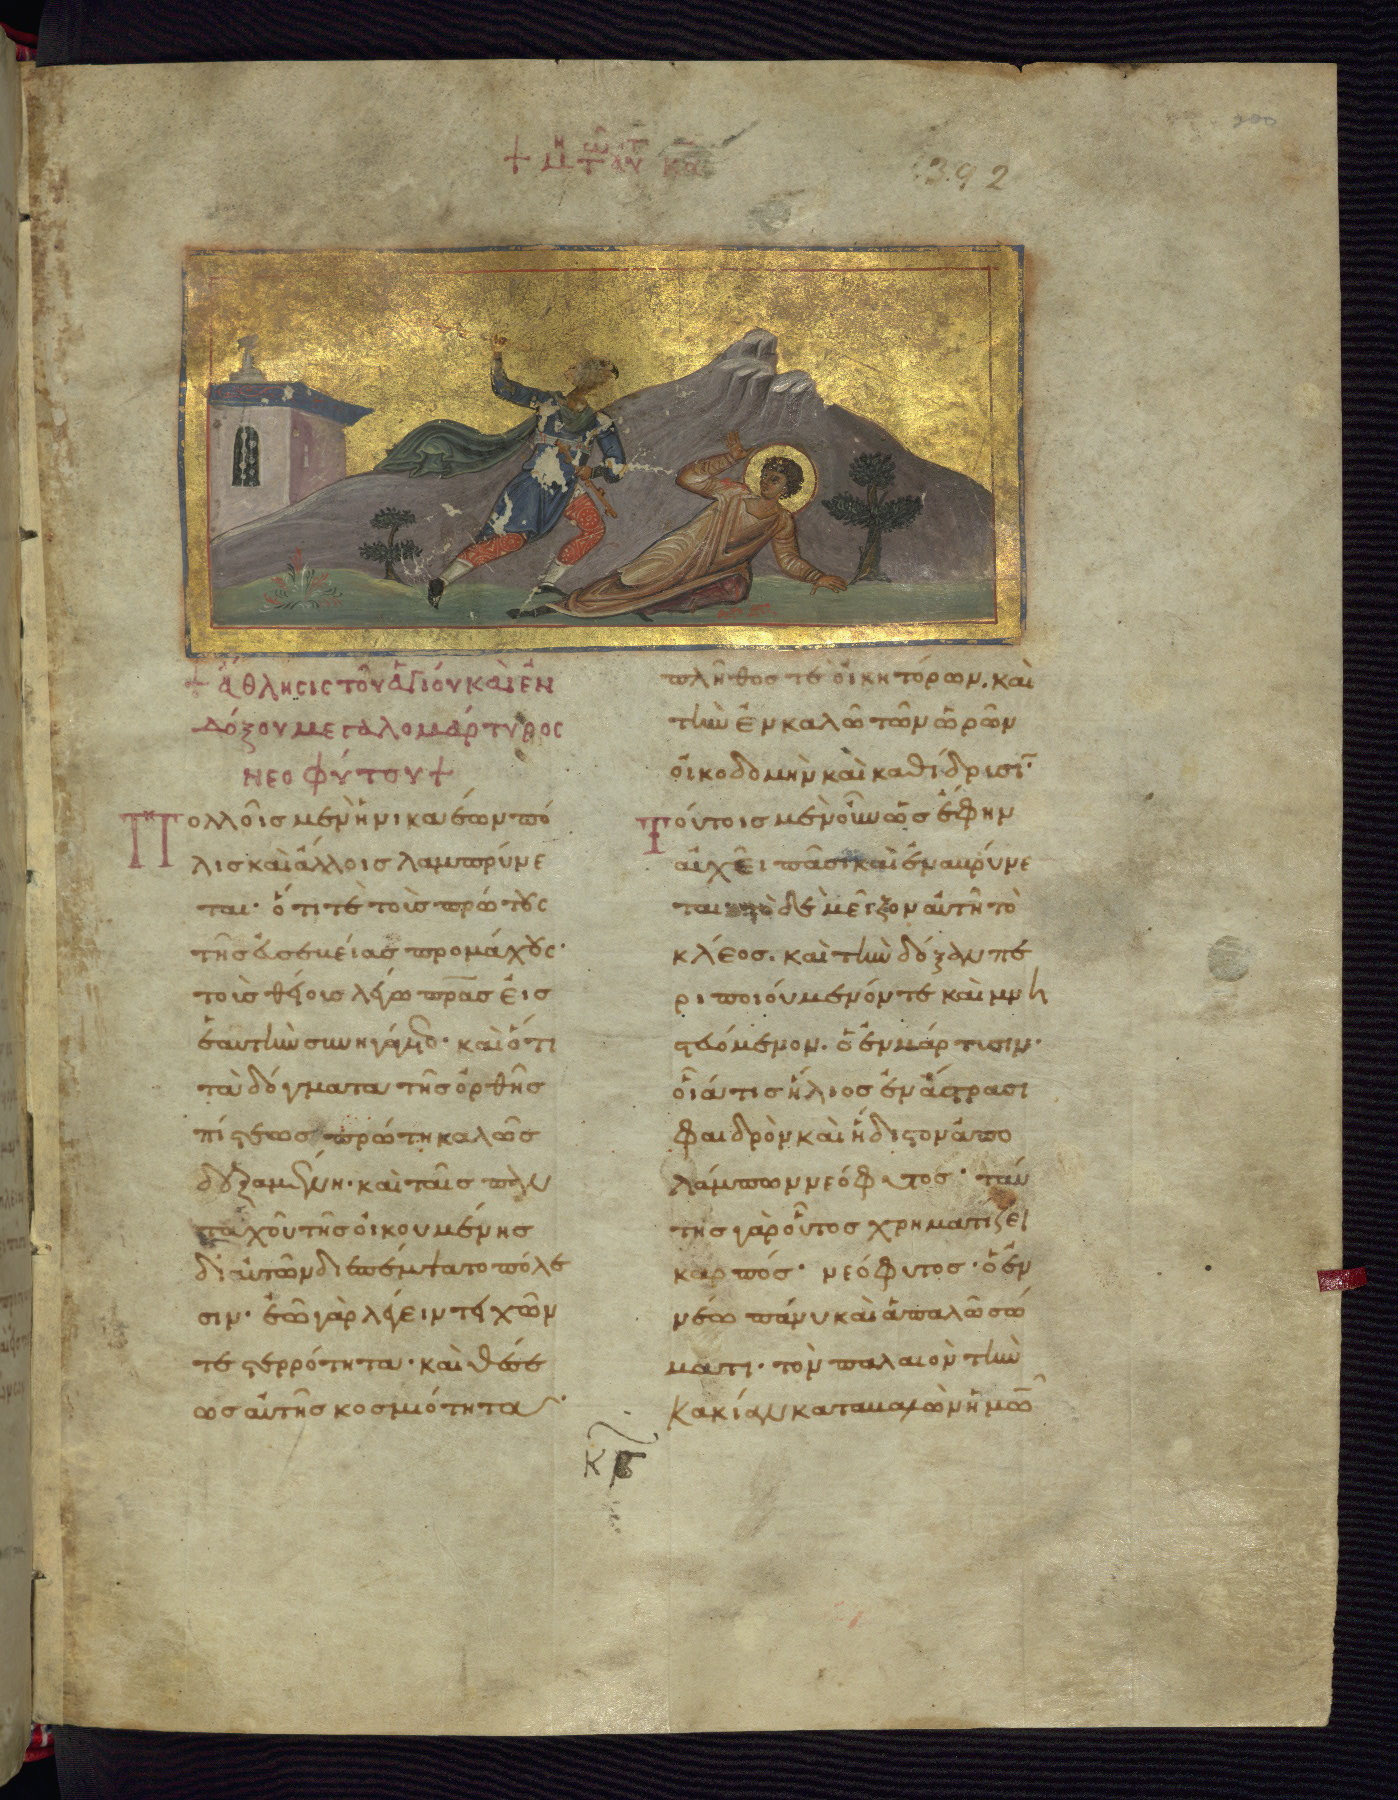 + μὴ τῷ αὐτῷ κα
392
200
+ ἄθλησις τοῦ ἁγίου καὶ ἐν
δόξου μεγαλομάρτυρος
νεοφύτου +
Πολλοῖς μὲν ἡ νικαέων πό
λις καὶ ἄλλοις λαμπρύνε
ται· ὅτι τὲ τοὺς πρώτους
τῆς εὐσεβείας προμάχους·
τοὺς θείους λέγω πρας εἰς
ἑαυτὴν συνήγαγε· καὶ ὅτι
τὰ δόγματα τῆς ὀρθῆς
πίστεως πρώτη καλῶς
δεξαμένη· καὶ ταῖς παν
ταχοῦ τῆς οἰκουμένης
δι' αὐτῶν διεπέμψατο πόλε
σιν· ἐῶ γὰρ λέγειν τειχῶν
τε στερρότητα· καὶ θέσε
ως αὐτῆς κοσμιότητα·
πλῆθος τὲ οἰκητόρων. καὶ
τὴν ἐν καλῶ τῶν ὡρῶν
οἰκοδομὴν καὶ καθίδρυσιν·
Τούτοις μὲν οὖν ὡς ἔφην
αὐχεῖ πᾶσι καὶ ἐναβρύνε
ται· τὸ δὲ μεῖζον αὐτῆ τὸ
κλέος. καὶ τὴν δόξαν πε
ριποιούμενόν τε καὶ μνη
στευόμενον. ὁ ἐν μάρτυσιν·
οἷά τις ἥλιος ἐν ἄστρασι
φαιδρὸν καὶ ἥδιστον ἀπο
λάμπων νεόφυτος· ταύ
της γὰρ οὗτος χρηματίζει
καρπός· νεόφυτος· ὁ ἐν
νέω πάνυ καὶ ἁπαλῶ σώ
ματι· τὸν παλαιὸν τὴν
κακίαν καταβαλὼν ἡμῶν
κβ